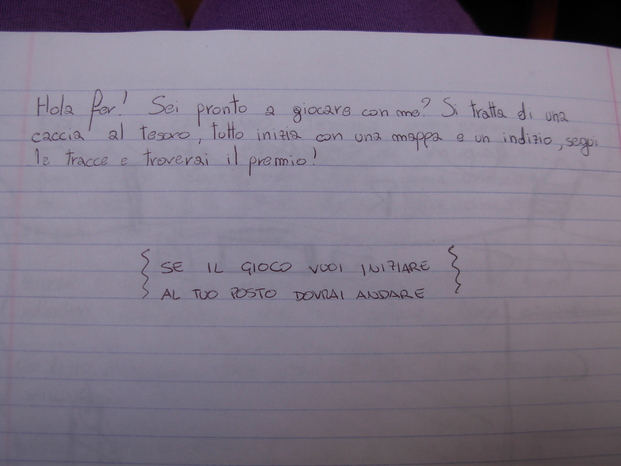 Hola fer! Sei pronto a giocare con me? Si tratta di una
caccia al tesoro, tutto inizia con una mappa e un indizio, segui
le tracce e troverai il premio!
SE IL GIOCO VUOI INIZIARE
AL TUO POSTO DOVRAI ANDARE